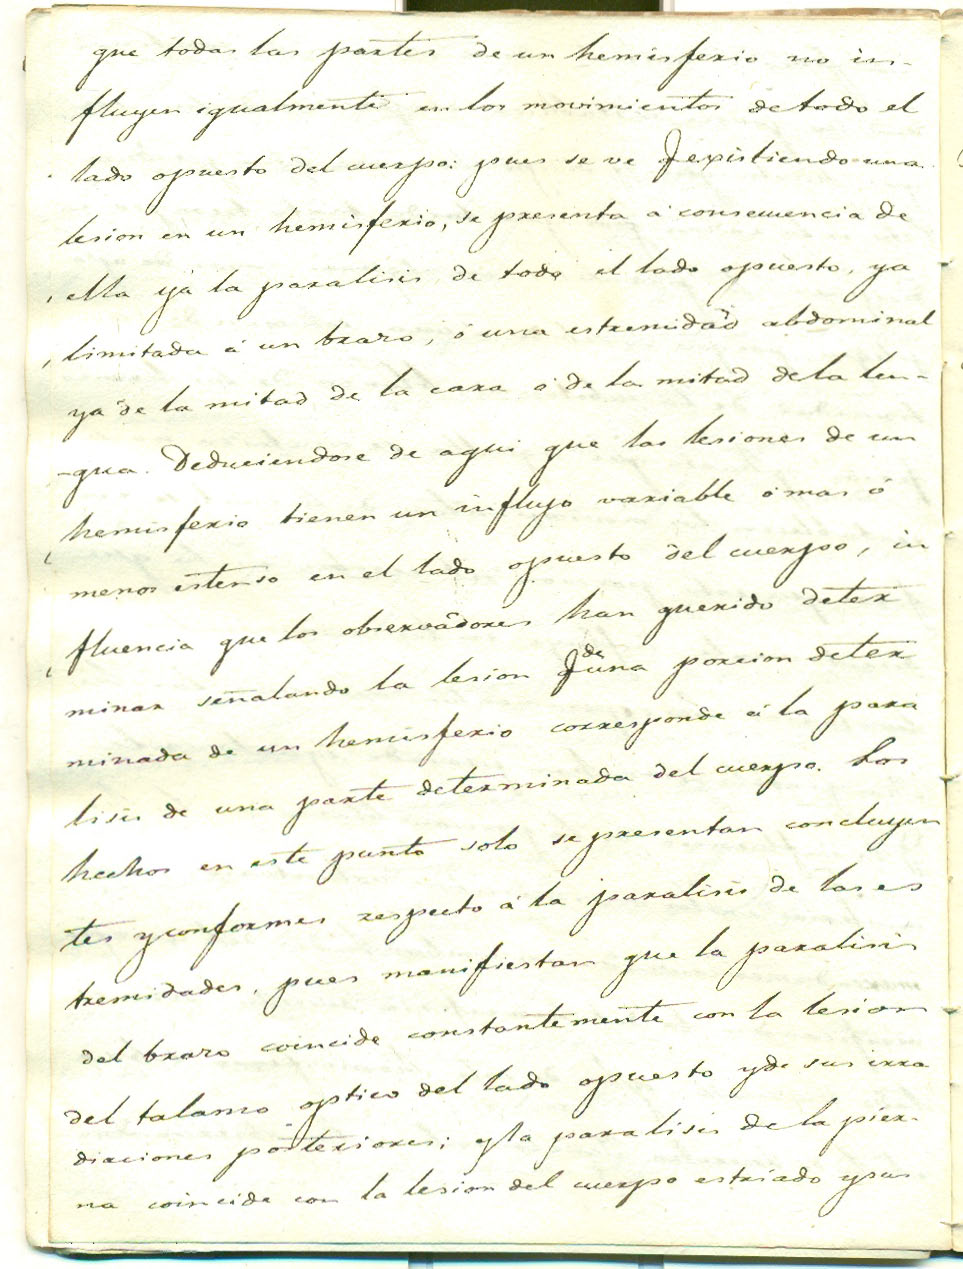 que todas las partes de un hemisferio no in-
fluyen igualmente en los movimientos de todo el
lado opuesto del cuerpo: pues se ve q existiendo una
lesion en un hemisferio, se presenta á consecuencia de
ella ya la paralisis de todo el lado opuesto, ya
limitada á un brazo, ó una estremidad abdominal
ya de la mitad de la cara ó de la mitad de la len-
-gua. Deduciendose de aqui que las lesiones de un
hemisferio tienen un influjo variable ó mas ó
menos estenso en el lado opuesto del cuerpo, in
fluencia que los observadores han querido deter
minar señalando la lesion q de una porcion deter
minada de un hemisferio corresponde á la para
lisis de una parte determinada del cuerpo. Los
hechos en este punto solo se presentan concluyen
tes y conformes respecto á la paralisis de las es
tremidades, pues manifiestan que la paralisis
del brazo coincide constantemente con la lesion
del talamo optico del lado opuesto y de sus irra
diaciones posteriores; y la paralisis de la pier-
na coincide con la lesion del cuerpo estriado y sus